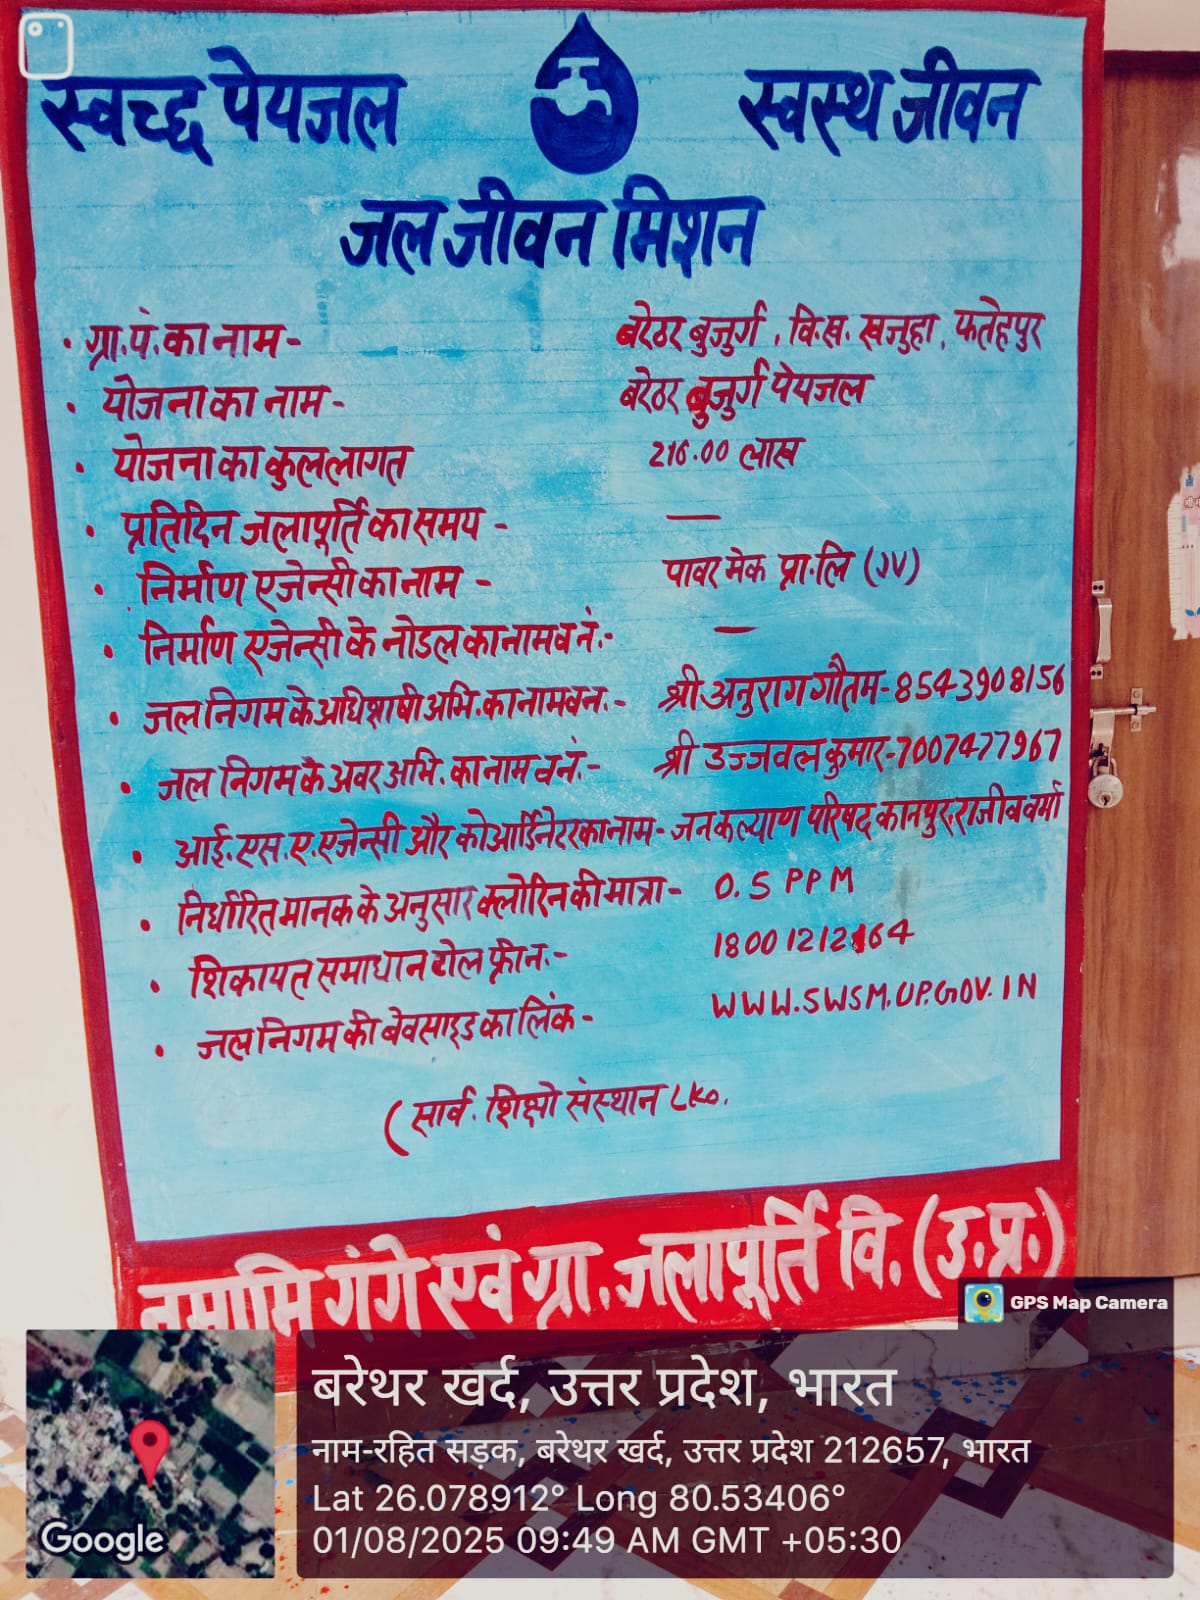 स्वच्छ पेयजल स्वस्थ जीवन
जल जीवन मिशन
• ग्रा.पं. का नाम - बरेठर बुजुर्ग, वि.ख. खजुहा, फतेहपुर
• योजना का नाम - बरेठर बुजुर्ग पेयजल
• योजना का कुल लागत 216.00 लाख
• प्रतिदिन जलापूर्ति का समय - —
• निर्माण एजेन्सी का नाम - पावर मेक प्रा.लि (JV)
• निर्माण एजेन्सी के नोडल का नाम व नं.- —
• जल निगम के अधिशाषी अभि. का नाम व न.- श्री अनुराग गौतम-8543908156
• जल निगम के अवर अभि. का नाम व नं.- श्री उज्जवल कुमार-7007477967
• आई.एस.ए. एजेन्सी और कोआर्डिनेटर का नाम- जन कल्याण परिषद कानपुर, राजीव वर्मा
• निर्धारित मानक के अनुसार क्लोरिन की मात्रा- 0.5 PPM
• शिकायत समाधान टोल फ्री न.- 18001212164
• जल निगम की बेवसाइड का लिंक - WWW.SWSM.UP.GOV.IN
(सार्व. शिक्षो संस्थान LKO.
नमामि गंगे एवं ग्रा. जलापूर्ति वि. (उ.प्र.)
GPS Map Camera
बरेथर खर्द, उत्तर प्रदेश, भारत
नाम-रहित सड़क, बरेथर खर्द, उत्तर प्रदेश 212657, भारत
Lat 26.078912° Long 80.53406°
01/08/2025 09:49 AM GMT +05:30
Google